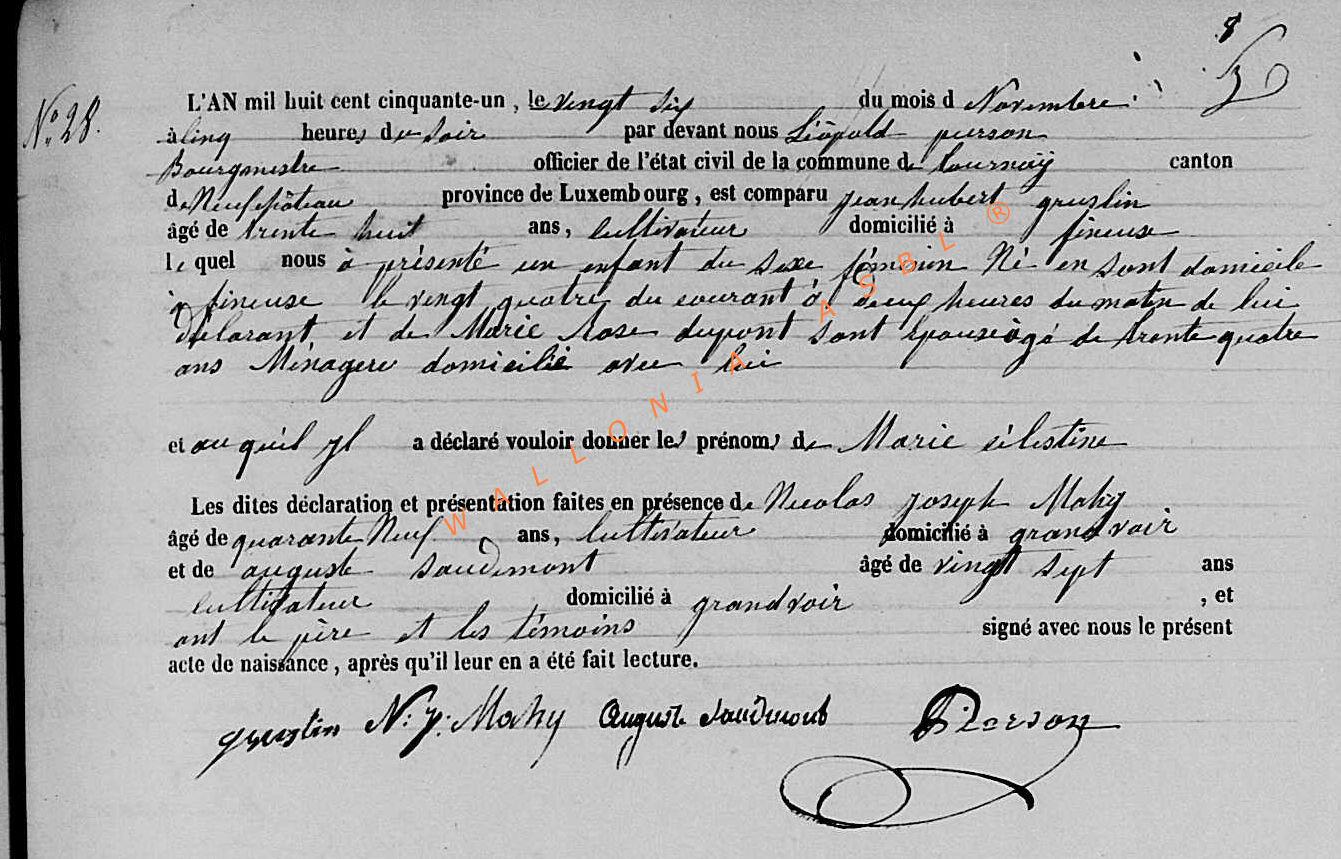 8
5
N° 28.
L'AN mil huit cent cinquante-un, le vingt six du mois d Novembre
à cinq heures du soir par devant nous Léopold pierson
Bourgmestre officier de l'état civil de la commune de tournay canton
de Neufchâteau province de Luxembourg, est comparu jean hubert gruslin
âgé de trente huit ans, cultivateur domicilié à fineuse
le quel nous à présenté un enfant du sexe féminin Né en sont domicile
à fineuse le vingt quatre du courant à deux heures du matin de lui
Déclarant et de Marie rose dupont sont épouse âgé de trente quatre
ans Ménagere domicilié avec lui
et au quéil jl a déclaré vouloir donner les prénoms de Marie célestine
Les dites déclaration et présentation faites en présence de Nicolas joseph Mahy
âgé de quarante Neuf ans, cultivateur domicilié à grandvoir
et de auguste saudemont âgé de vingt sept ans
cultivateur domicilié à grandvoir , et
ont le père et les témoins signé avec nous le présent
acte de naissance, après qu'il leur en a été fait lecture.
gruslin N: j: Mahy Auguste saudmont Pierson
WALLONIA ASBL ®